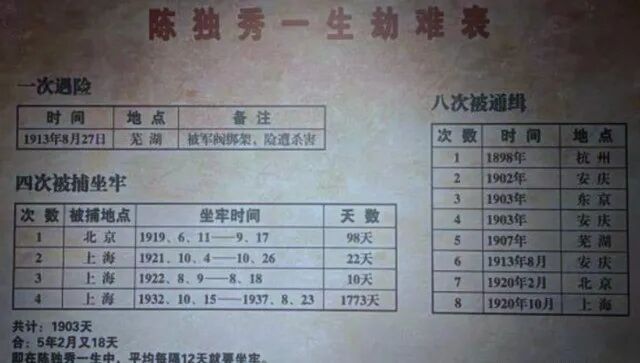 陈独秀一生劫难表
一次遇险
时 间 地 点 备 注
1913年8月27日 芜 湖 被军阀绑架、险遭杀害
四次被捕坐牢
次 数 被捕地点 坐牢时间 天 数
1 北 京 1919、6、11——9、17 98天
2 上 海 1921、10、4——10、26 22天
3 上 海 1922、8、9——8、18 10天
4 上 海 1932、10、15——1937、8、23 1773天
共计：1903天
合：5年2月又18天
即在陈独秀一生中，平均每隔12天就要坐牢。
八次被通缉
次 数 时 间 地 点
1 1898年 杭 州
2 1902年 安 庆
3 1903年 东 京
4 1903年 安 庆
5 1907年 芜 湖
6 1913年8月 安 庆
7 1920年2月 北 京
8 1920年10月 上 海